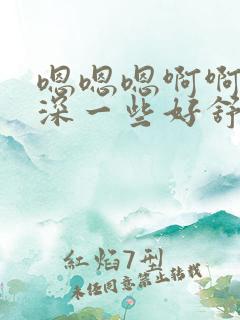 嗯嗯嗯啊啊
深一些好舒
红焰7型
未经同意禁止转载